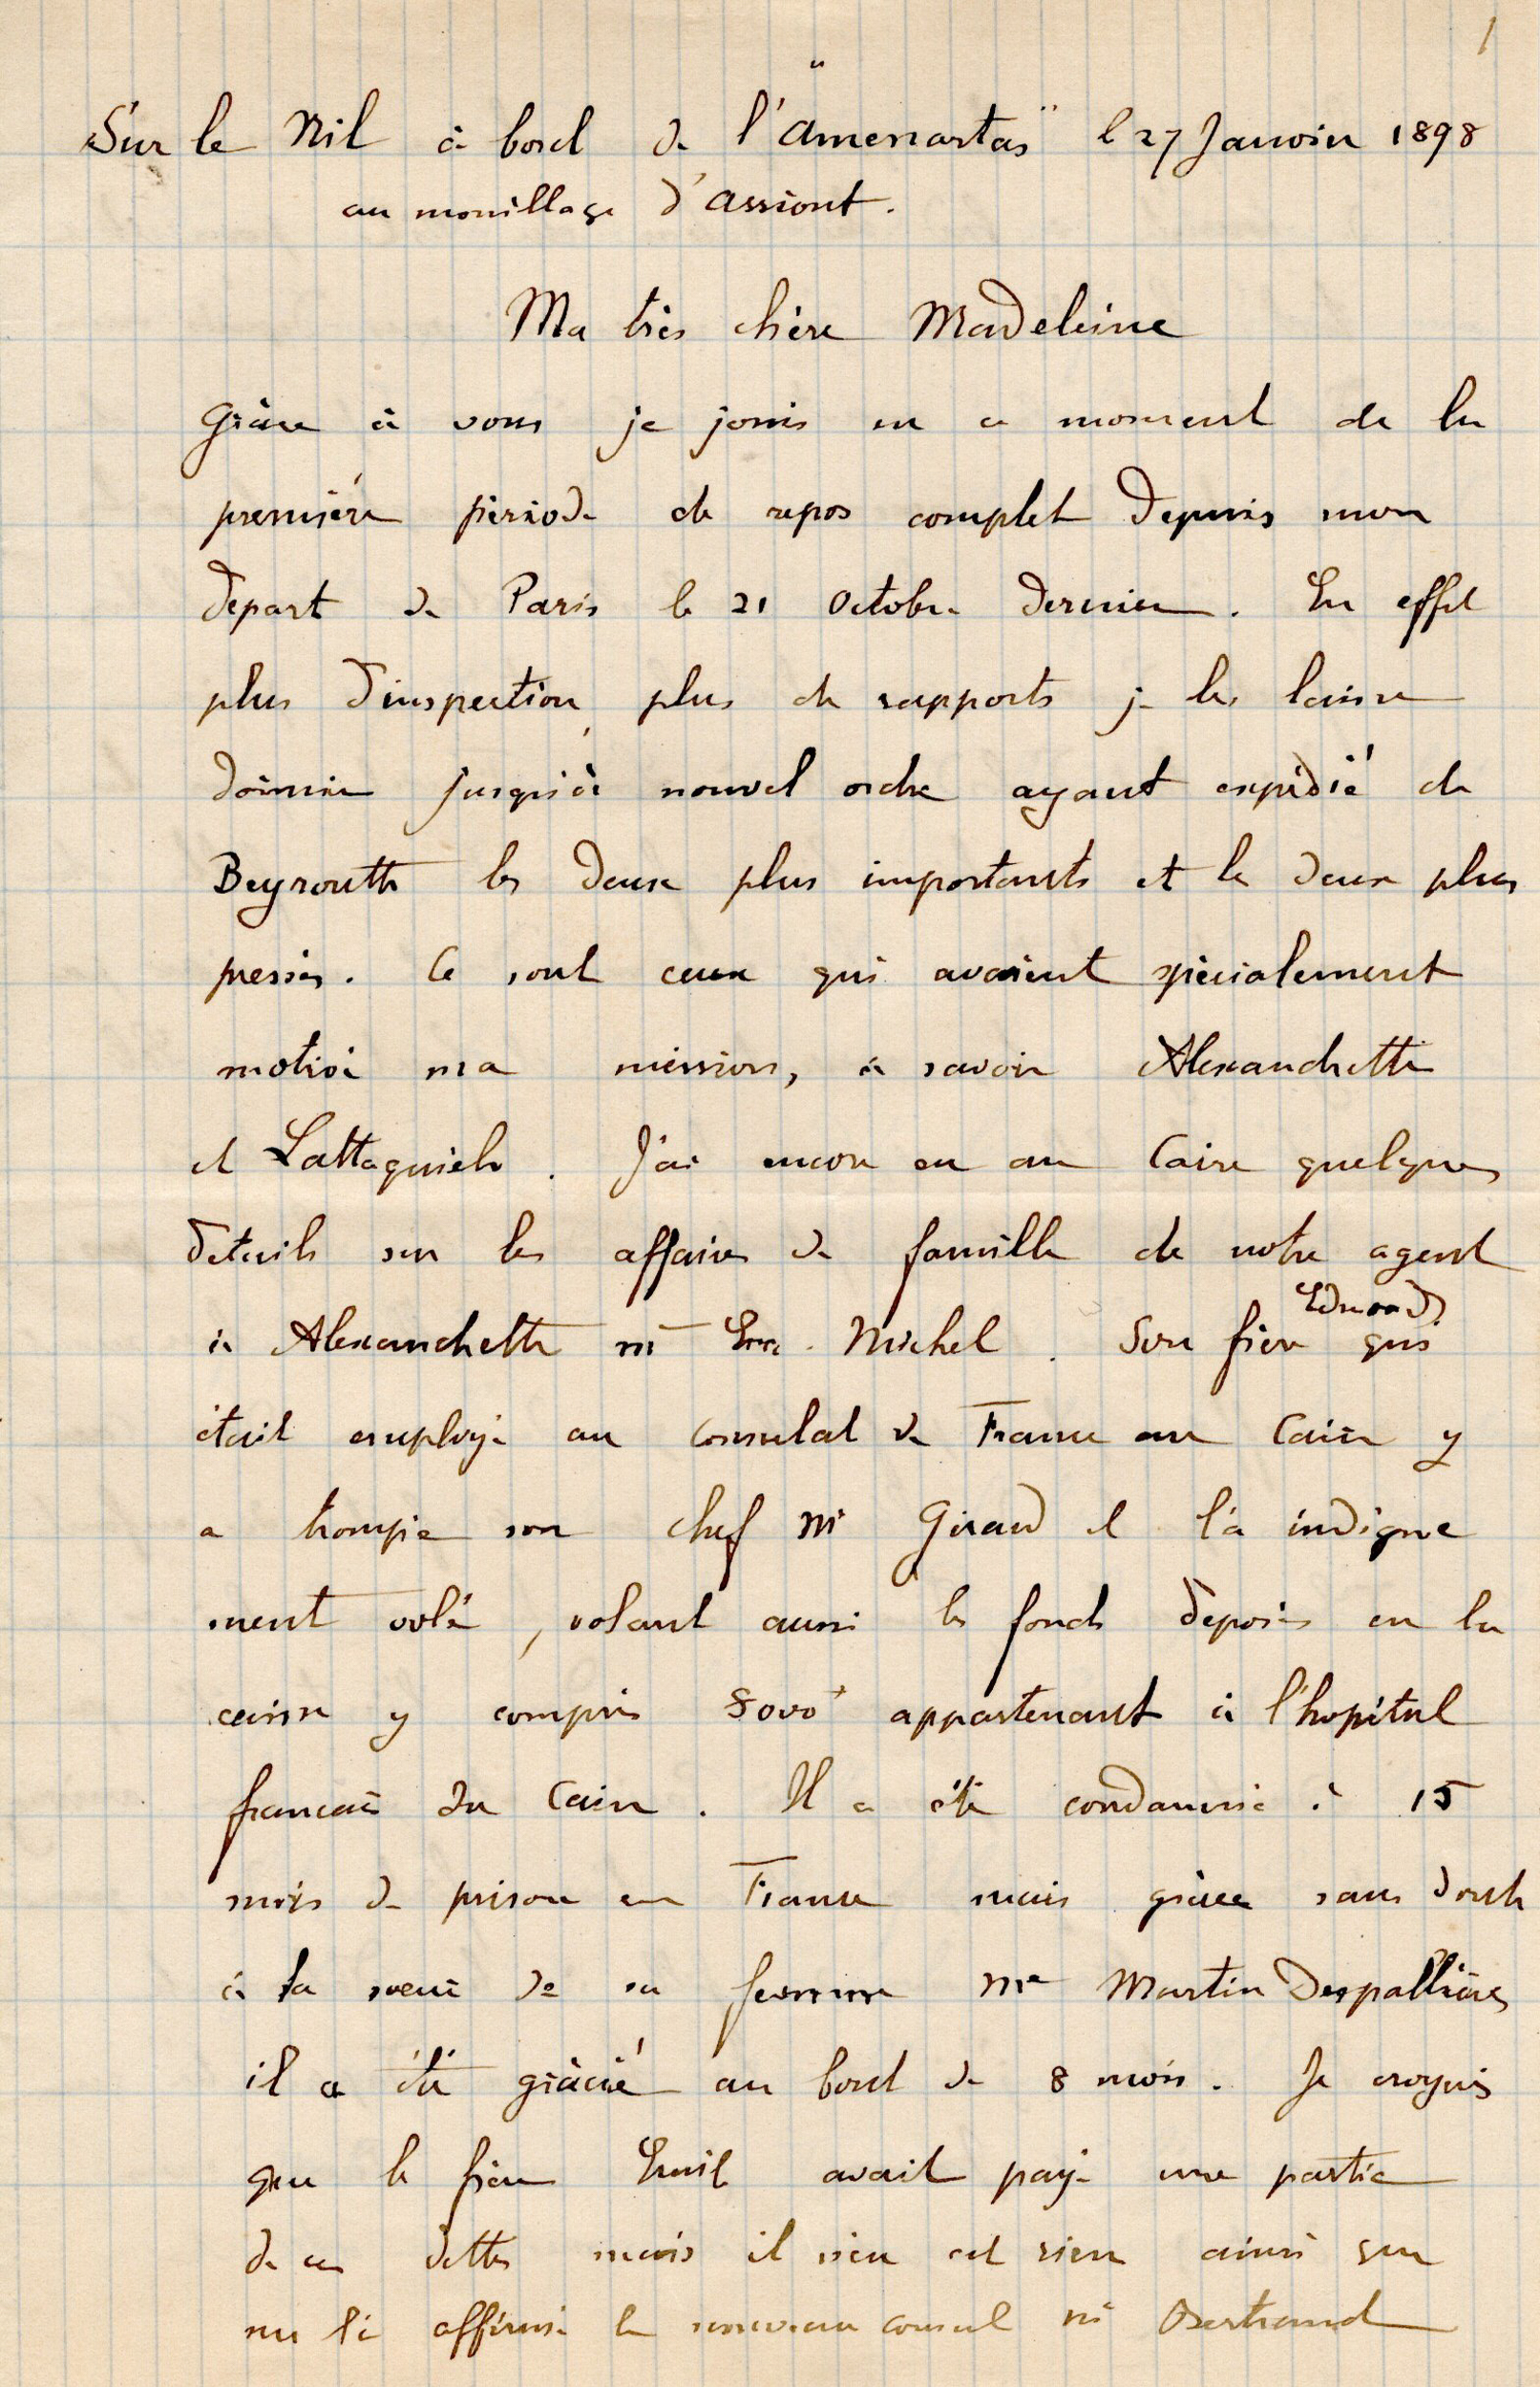 1
Sur le Nil à bord de l'"Amenartas" le 27 Janvier 1898
au mouillage d'Assiout.
Ma très chère Madeleine
Grâce à vous je jouis en ce moment de la
première période de repos complet depuis mon
départ de Paris le 21 Octobre dernier. En effet
plus d'inspection, plus de rapports je les laisse
dormir jusqu'à nouvel ordre ayant expédié de
Beyrouth les deux plus importants et les deux plus
pressés. Ce sont ceux qui avaient spécialement
motivé ma mission, à savoir Alexandrette
et Lattaquieh. J'ai encore eu au Caire quelques
détails sur les affaires de famille de notre agent
à Alexandrette Mr Em. Michel. Son frère Edmond qui
était employé au consulat de France au Caire y
a trompé son chef Mr Giraud et l'a indigne
ment volé, volant aussi les fonds déposés en la
caisse y compris appartenant à l'hopital
francais du Caire. Il a été condamné à 15
mois de prison en France mais grâce sans doute
à la soeur de sa femme Me Martin Despallières
il a été grâcié au bout de 8 mois. Je croyais
que le frère Emile avait payé une partie
de ces dettes mais il n'en est rien ainsi que
me l'a affirmé le nouveau consul Mr Bertrand